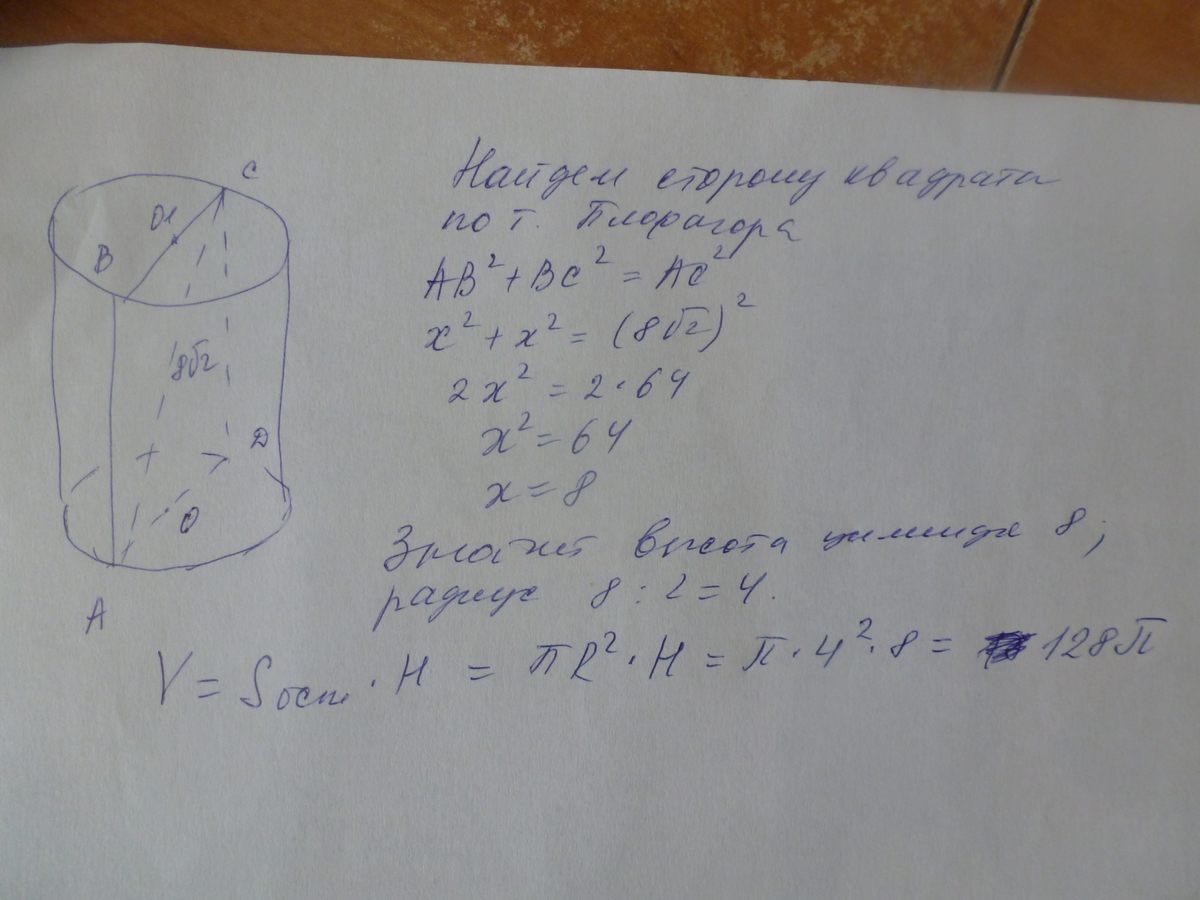 C
O1
B
8√2
D
O
A
Найдем сторону квадрата
по т. Пифагора
AB² + BC² = AC²
x² + x² = (8√2)²
2x² = 2·64
x² = 64
x = 8
Значит высота цилиндра 8;
радиус 8 : 2 = 4.
V = Sосн. · H = ПR² · H = П · 4² · 8 = 128П